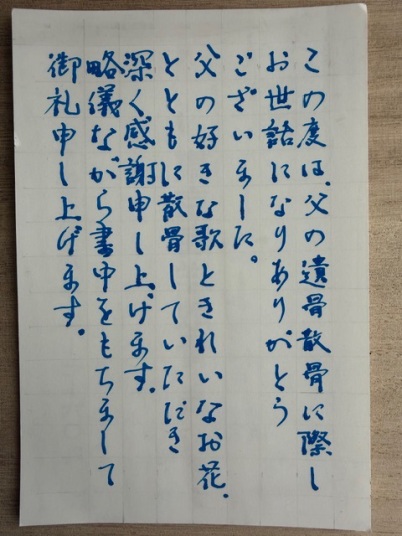 この度は、父の遺骨散骨に際し
お世話になりありがとう
ございました。
父の好きな歌ときれいなお花、
とともに散骨していただき
深く感謝申し上げます。
略儀ながら書中をもちまして
御礼申し上げます。